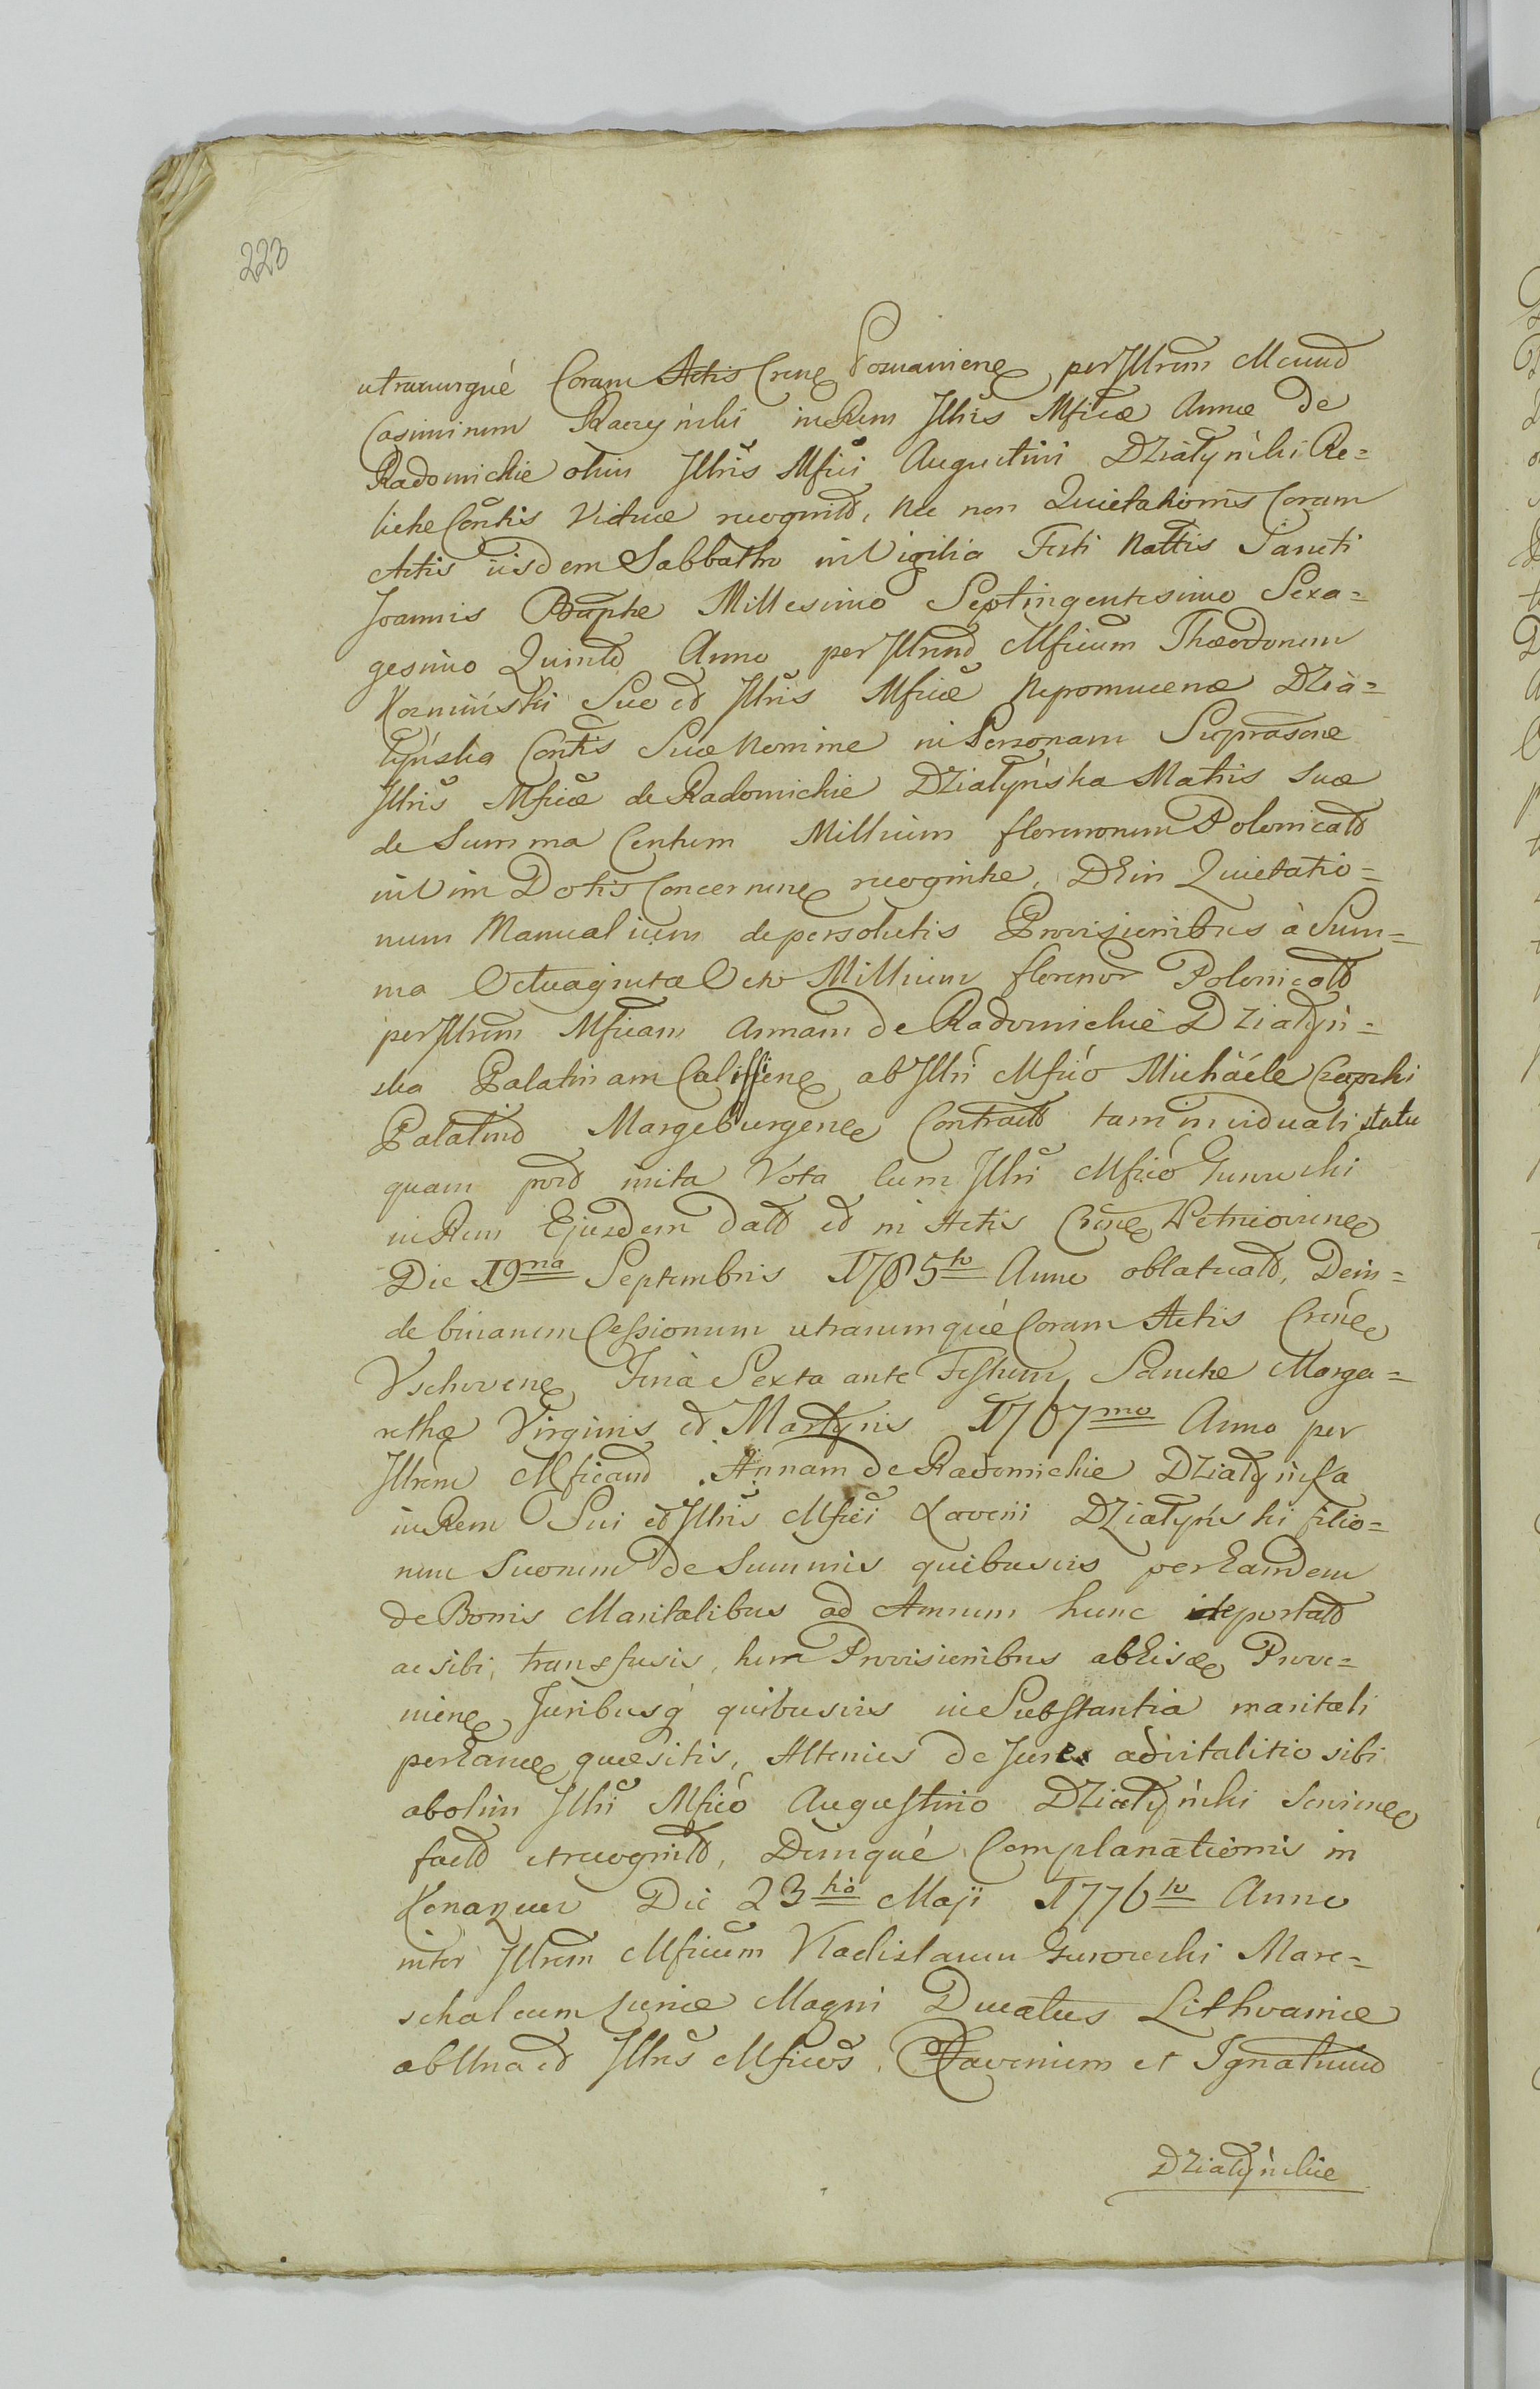 223
utrarumque Coram Actis Crens Posnaniens per Illrem Mcum
Casimirum Raczyński in Rem Illris Mficæ Annæ de
Radomickie olim Illris Mfici Augustini Działyński Re=
lictæ Contis Viduæ recognit, nec non Quietationis Coram
Actis iisdem Sabbatho in Vigilia Festi Nattis Sancti
Joannis Baptæ Millesimo Septingentesimo Sexa=
gesimo Quinto Anno per Illrem Mficum Theodorum
Kozmiński Suo et Illris Mficæ Nepomucenæ Dzia=
łyńska Contis Suæ Nomine in Personam Suprascæ
Illris Mficæ de Radomickie Działyńska Matris Suæ
de Summa Centum Millium florenorum Polonicat
in Vim Dotis Concernens recognitæ, Dein Quietatio=
num Manualium de persolutis Provisionibus à Sum=
ma Octuaginta Octo Millium florenor Polonicat
per Illrem Mficam Annam de Radomickie Działyń=
ska Palatinam Calissiens ab Illri Mfico Michaéle Czapski
Palatino Margeburgens Contract tam in viduali statu
quam post inita Vota cum Illri Mfico Gurowski
in Rem Ejusdem dat et in Actis Crens Petricoviens
Die 19na Septembris 1785to Anno oblatuat, Dein=
de binarum Cessionum utrarumque Coram Actis Crens
Vschovens Feria Sexta ante Festum Sanctæ Marga=
rethæ Virginis et Martyris 1767mo Anno per
Illrem Mficam Annam de Radomickie Działyńska
in Rem Sui et Illris Mfici Xaverii Działyński filio=
rum Suorum de Summis quibusvis per Eandem
de Bonis Maritalibus ad Annum hunc reportat
ac sibi transfusis, tum Provisionibus ab Eisd Prove=
niens Juribusq quibusvis in Substantia maritali
per Eand quæsitis, Alterius de Jure advitalitio sibi
ab olim Illri Mfico Augustino Działyński Serviens
fact et recognit, Denique Complanationis in
Konarzew Die 23tia Maji 1776to Anno
inter Illrem Mficum Vladislaum Gurowski Mare=
schalcum Curiæ Magni Ducatus Lithvaniæ
ab Una et Illres Mficos Xaverium et Ignatium
Działyńskie